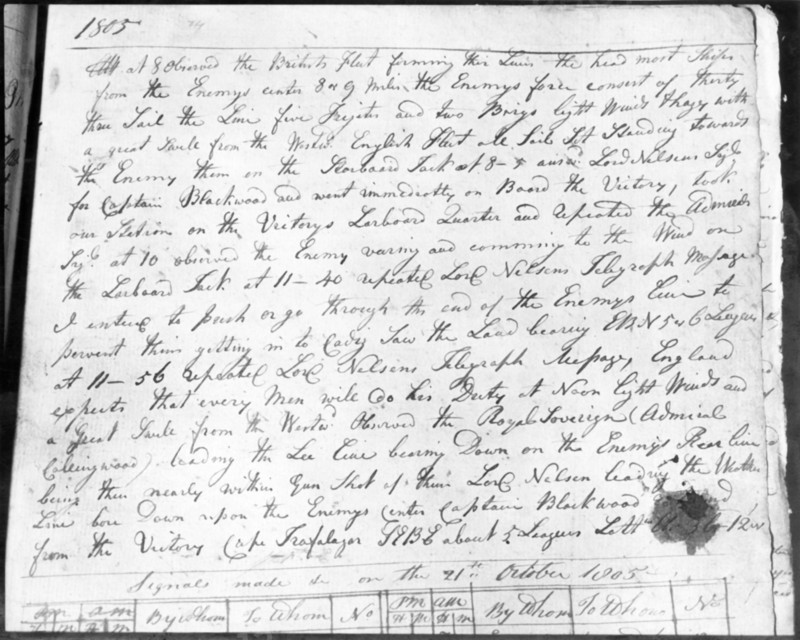 1805
at 8 Observed the British Fleet forming their Lines the head most Ships
from the Enemys center 8 or 9 Miles the Enemys force consest of thirty
three Sail the Line five Frigates and two Brigs light Winds & hazy with
a great Swell from the Westwd English Fleet all Sail Set Standing towards
the Enemy them on the Starboard Tack at 8- Lord Nelsens Sigl
for Captain Blackwood and went immediatly on Board the Victory, took
our Station on the Victorys Larboard Quarter and repeated the Admirals
Sigl at 10 observed the Enemy waring and comming to the Wind on
the Larboard Tack at 11-40 repeated Lord Nelsens Telegraph Message
I intend to push or go through the end of the Enemys line to
pervent them getting in to Cadiz Saw the Land bearing EBN 5 or 6 Leagues
at 11-56 repeated Lord Nelsens Telegraph Message, England
expects that every Men will do his Duty at Noon light Winds and
a Great Swell from the Westwd Observed the Royal Soverign (Admiral
Collingwood) leading the Lee line bearing Down on the Enemys Rear line
being then nearly within Gun Shot of them Lord Nelsen leading the Weather
Line bore Down upon the Enemys Center Captain Blackwood
from the Victory Cape Trafalgar SEBE about 5 Leagues
Signals made on the 21st October 1805
pm am By Whom To Whom No pm am By Whom To Whom No
H M H M H M H M